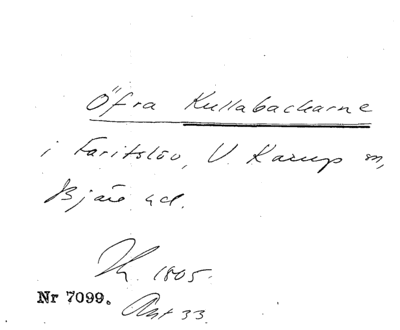 Öfra Kullabackarne
i Faritslöv, V. Karup sn,
Bjäre hd.
Kh 1805.
Nr 7099. Akt 33